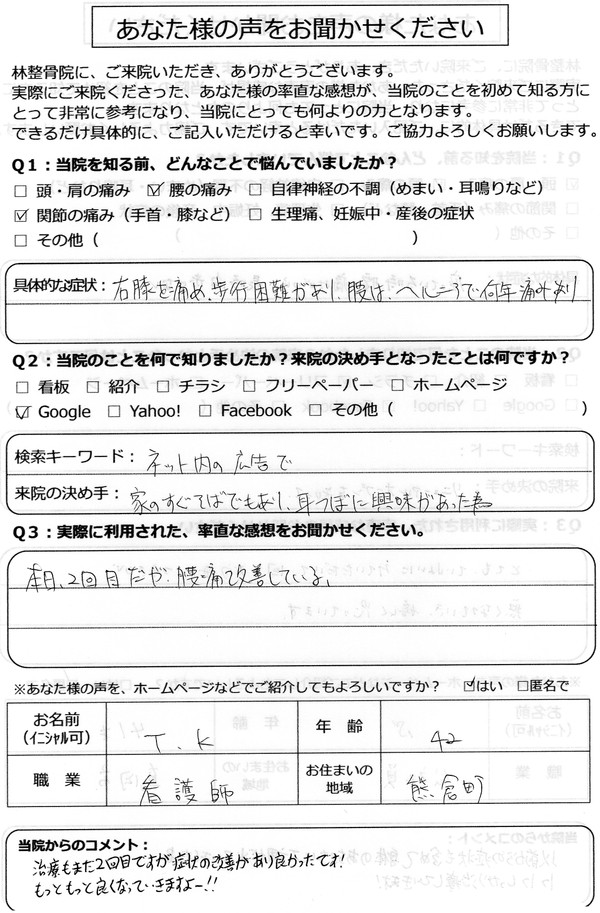 あなた様の声をお聞かせください
林整骨院に、ご来院いただき、ありがとうございます。
実際にご来院くださった、あなた様の率直な感想が、当院のことを初めて知る方に
とって非常に参考になり、当院にとっても何よりの力となります。
できるだけ具体的に、ご記入いただけると幸いです。ご協力よろしくお願いします。
Q1：当院を知る前、どんなことで悩んでいましたか？
□ 頭・肩の痛み ☑ 腰の痛み □ 自律神経の不調（めまい・耳鳴りなど）
☑ 関節の痛み（手首・膝など）□ 生理痛、妊娠中・産後の症状
□ その他（ ）
具体的な症状：右膝を痛め、歩行困難があり、腰は、ヘルニアで何年痛みあり
Q2：当院のことを何で知りましたか？来院の決め手となったことは何ですか？
□ 看板 □ 紹介 □ チラシ □ フリーペーパー □ ホームページ
☑ Google □ Yahoo! □ Facebook □ その他（ ）
検索キーワード：ネット内の広告で
来院の決め手：家のすぐそばでもあり、耳つぼに興味があった為
Q3：実際に利用された、率直な感想をお聞かせください。
本日、2回目だが、腰痛改善している。
※あなた様の声を、ホームページなどでご紹介してもよろしいですか？ ☑はい □匿名で
お名前 （イニシャル可） T.K 年 齢 42
職 業 看護師 お住まいの地域 熊倉町
当院からのコメント：
治療もまだ2回目ですが症状の改善があり良かったです!
もっともっと良くなっていきますよー!!